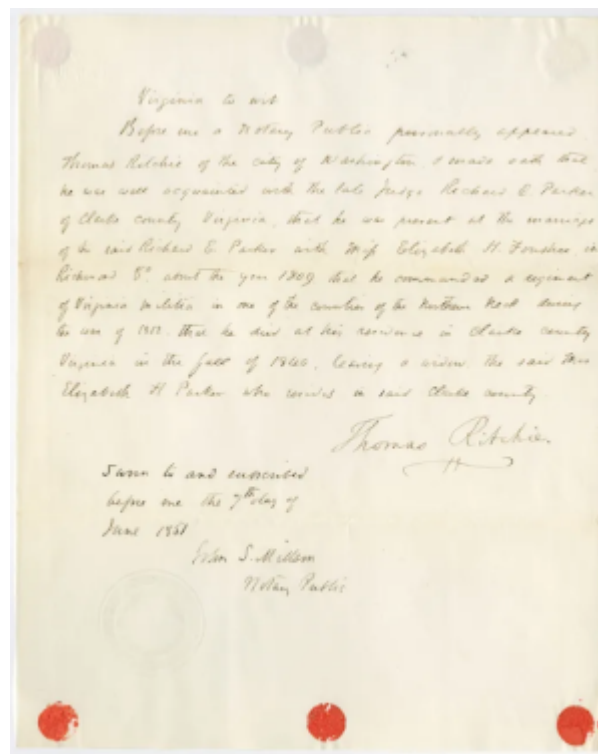 Virginia to wit
Before me a Notary Public personally appeared
Thomas Ritchie of the city of Washington & made oath that
he was well acquainted with the late Judge Richard E. Parker
of Clarke county Virginia, that he was present at the marriage
of the said Richard E. Parker with Miss Elizabeth H. Foushee, in
Richmond Va. about the year 1809 that he commanded a regiment
of Virginia militia in one of the counties of the Northern Neck during
the war of 1812. that he died at his residence in Clarke county
Virginia in the fall of 1840, leaving a widow, the said Mrs
Elizabeth H Parker who resides in said Clarke county.
Thomas Ritchie
Sworn to and subscribed
before me the 7th day of
June 1851
John S.
Notary Public